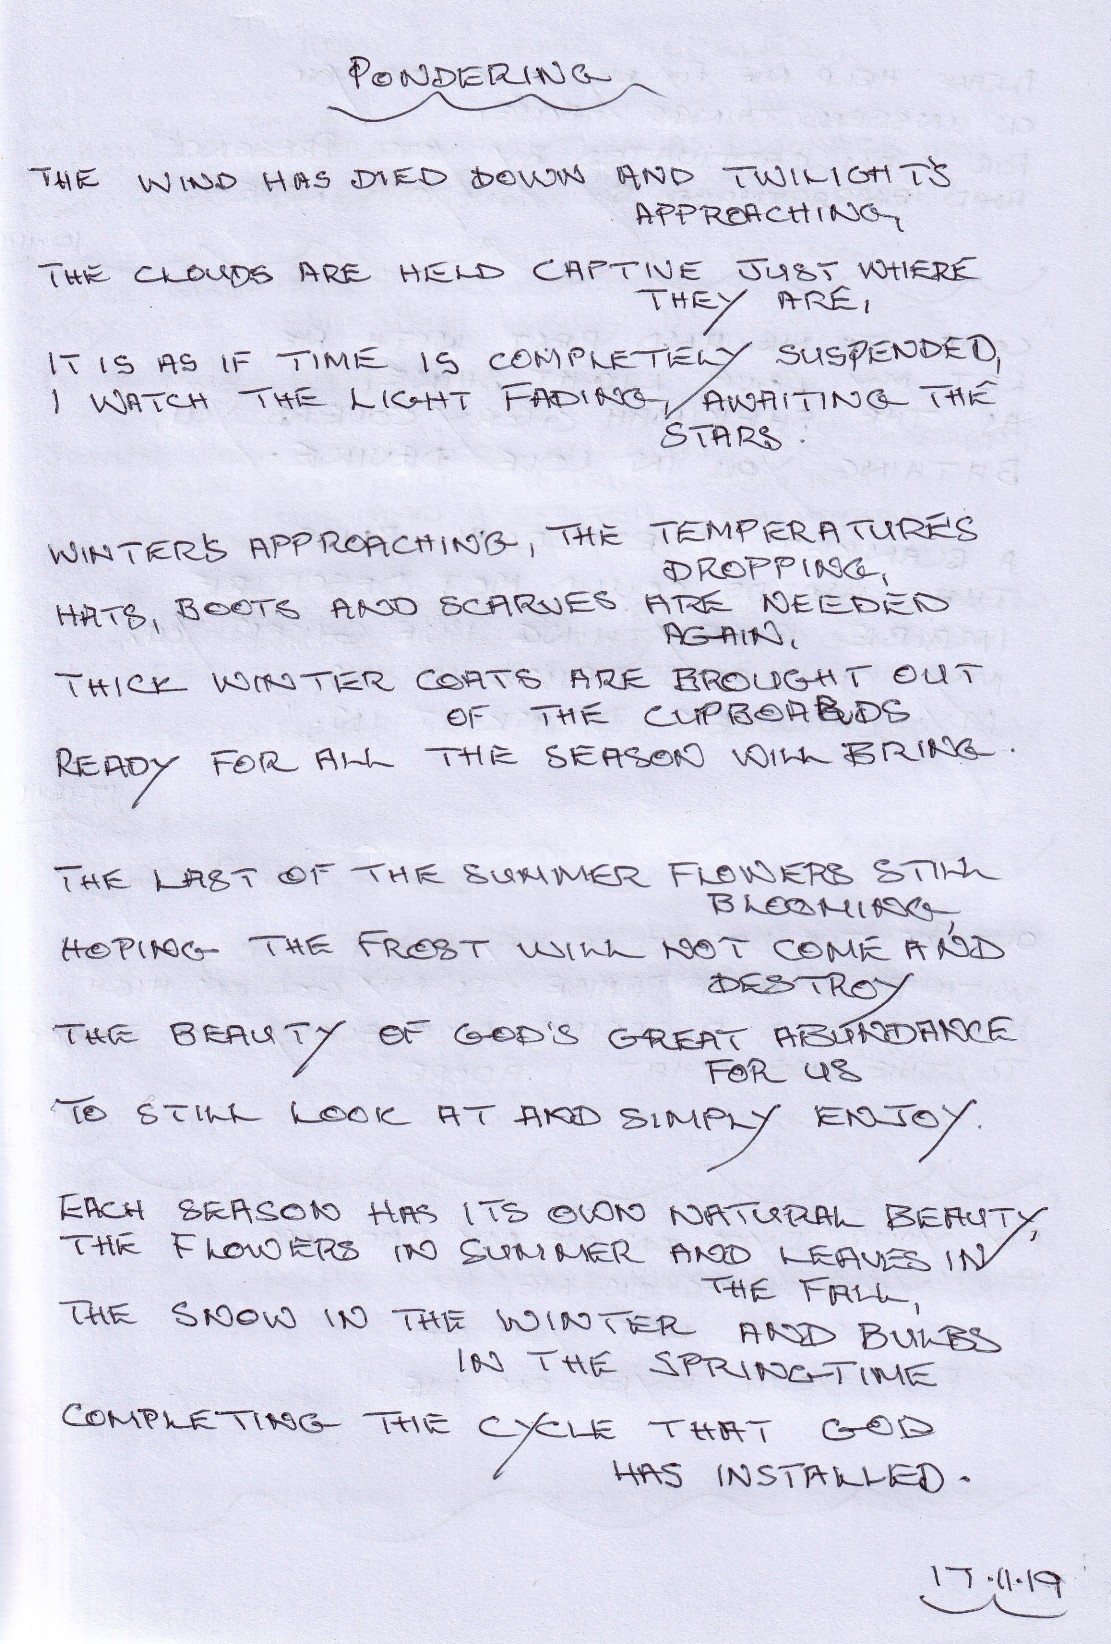 PONDERING
THE WIND HAS DIED DOWN AND TWILIGHT'S
APPROACHING,
THE CLOUDS ARE HELD CAPTIVE JUST WHERE
THEY ARE,
IT IS AS IF TIME IS COMPLETELY SUSPENDED,
I WATCH THE LIGHT FADING, AWAITING THE
STARS.
WINTER'S APPROACHING, THE TEMPERATURE'S
DROPPING,
HATS, BOOTS AND SCARVES ARE NEEDED
AGAIN,
THICK WINTER COATS ARE BROUGHT OUT
OF THE CUPBOARDS
READY FOR ALL THE SEASON WILL BRING.
THE LAST OF THE SUMMER FLOWERS STILL
BLOOMING,
HOPING THE FROST WILL NOT COME AND
DESTROY
THE BEAUTY OF GOD'S GREAT ABUNDANCE
FOR US
TO STILL LOOK AT AND SIMPLY ENJOY.
EACH SEASON HAS ITS OWN NATURAL BEAUTY,
THE FLOWERS IN SUMMER AND LEAVES IN
THE FALL,
THE SNOW IN THE WINTER AND BULBS
IN THE SPRING-TIME
COMPLETING THE CYCLE THAT GOD
HAS INSTALLED.
17.11.19